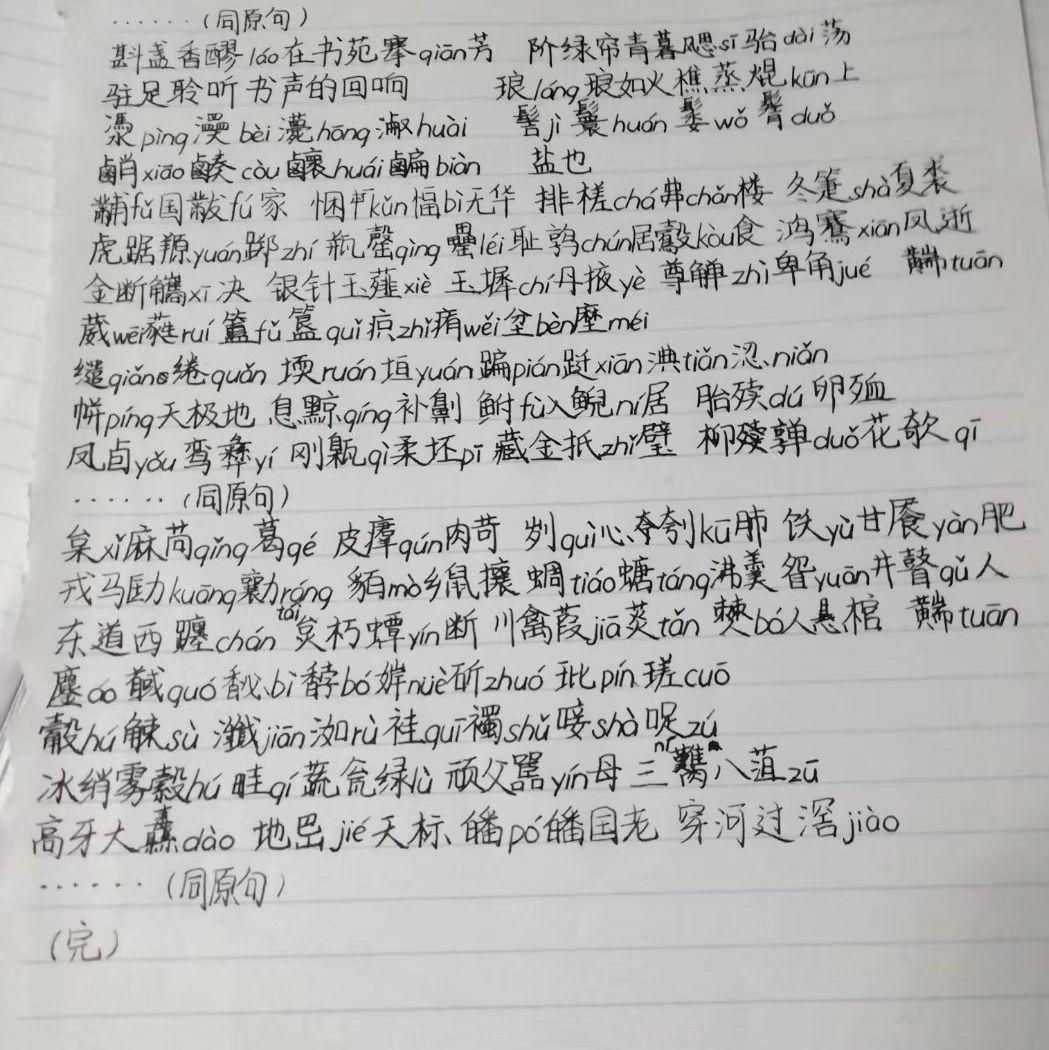 ······（同原句）
斟盏香醪láo在书苑搴qiān芳 阶绿帘青暮飔sī骀dài荡
驻足聆听书声的回响 琅láng琅如火樵蒸焜kūn上
淜pìng bèi hōng huài 髻jì鬟huán鬌wǒ duǒ
xiāo còu huái biàn 盐也
黼fǔ国黻fú家 悃kǔn愊bì无华 排槎chá弗chǎn楼 冬箑shà夏裘
虎踞羱yuán踯zhí 瓶罄qìng罍léi耻 鹑chún居鷇kòu食 鸿鶱xiān凤逝
金断觿xī决 银针玉薤xiè 玉墀chí丹掖yè 尊觯zhì卑角jué 黇tuān
葳wēi蕤ruí 簠fǔ簋guǐ 疻zhǐ痏wěi 坌bèn塺méi
缱qiǎn绻quǎn 堧ruán垣yuán 蹁pián跹xiān 淟tiǎn涊niǎn
帡píng天极地 息黥qíng补劓 鲋fù入鲵ní居 胎殰dú卵殈
凤卣yǒu鸾彝yí 刚甈qì柔坯pī 藏金抵zhǐ璧 柳亸duǒ花欹qī
······（同原句）
枲xǐ麻苘qǐng葛gé 皮㿏qún肉苛 刿guì心刳kū肺 饫yù甘餍yàn肥
戎马劻kuāng勷ráng 貊mò乡鼠攘 蜩tiáo螗táng沸羹 眢yuān井瞽gǔ人
东道西躔chán 炱tái朽蟫yín断 川禽葭jiā菼tǎn 僰bó人悬棺 黇tuān
鏖áo 馘guó 馝bì馞bó 婩nüè斫zhuó 玭pín瑳cuō
觳hú觫sù 瀸jiān洳rù 袿guī襡shǔ 唼shà哫zú
冰绡雾縠hú 畦qí蔬瓮绿lù 顽父嚚yín母 三臡ní八菹zū
高牙大纛dào 地岊jié天标 皤pó皤国老 穿河过滘jiào
······（同原句）
（完）